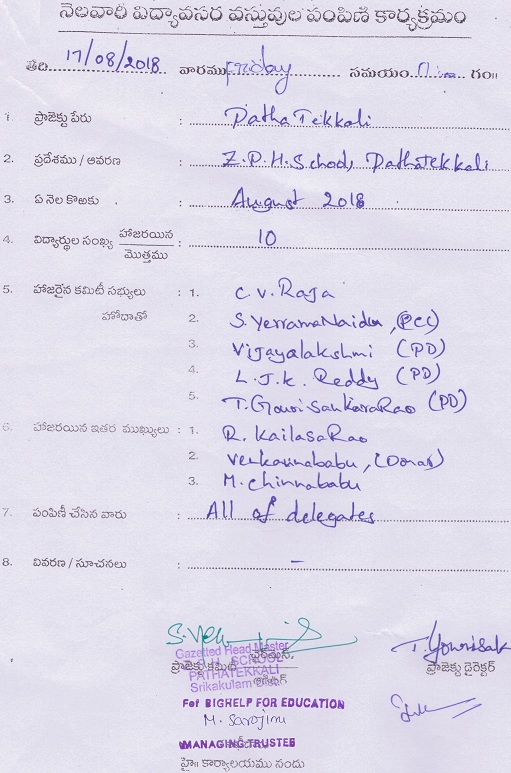 నెలవారీ విద్యావసర వస్తువుల పంపిణి కార్యక్రమం
తేది 17/08/2018 వారము Friday సమయం గం॥
1. ప్రాజెక్టు పేరు : Patha Tekkali
2. ప్రదేశము / ఆవరణ : Z.P.H.School, Pathatekkali
3. ఏ నెల కొఱకు : August 2018
4. విద్యార్థుల సంఖ్య హాజరయిన / మొత్తము : 10
5. హాజరైన కమిటీ సభ్యులు : 1. C.V. Raja
హోదాతో 2. S. Yerrama Naidu, (PCC)
3. Vijayalakshmi (PD)
4. L.J.K. Reddy (PD)
5. T. Gouri Sankara Rao (PD)
6. హాజరయిన ఇతర ముఖ్యులు : 1. R. Kailasa Rao
2. Venkannababu, (Donar)
3. M. Chinnababu
7. పంపిణీ చేసిన వారు : All of delegates
8. వివరణ / సూచనలు : –
Gazetted Head Master
ప్రాజెక్టు కమిటీ ఛైర్మన్, ప్రాజెక్టు డైరెక్టర్
SCHOOL
PATHATEKKALI
Srikakulam
For BIGHELP FOR EDUCATION
M. Sarojini
MANAGING TRUSTEE
హై॥ కార్యాలయము నందు